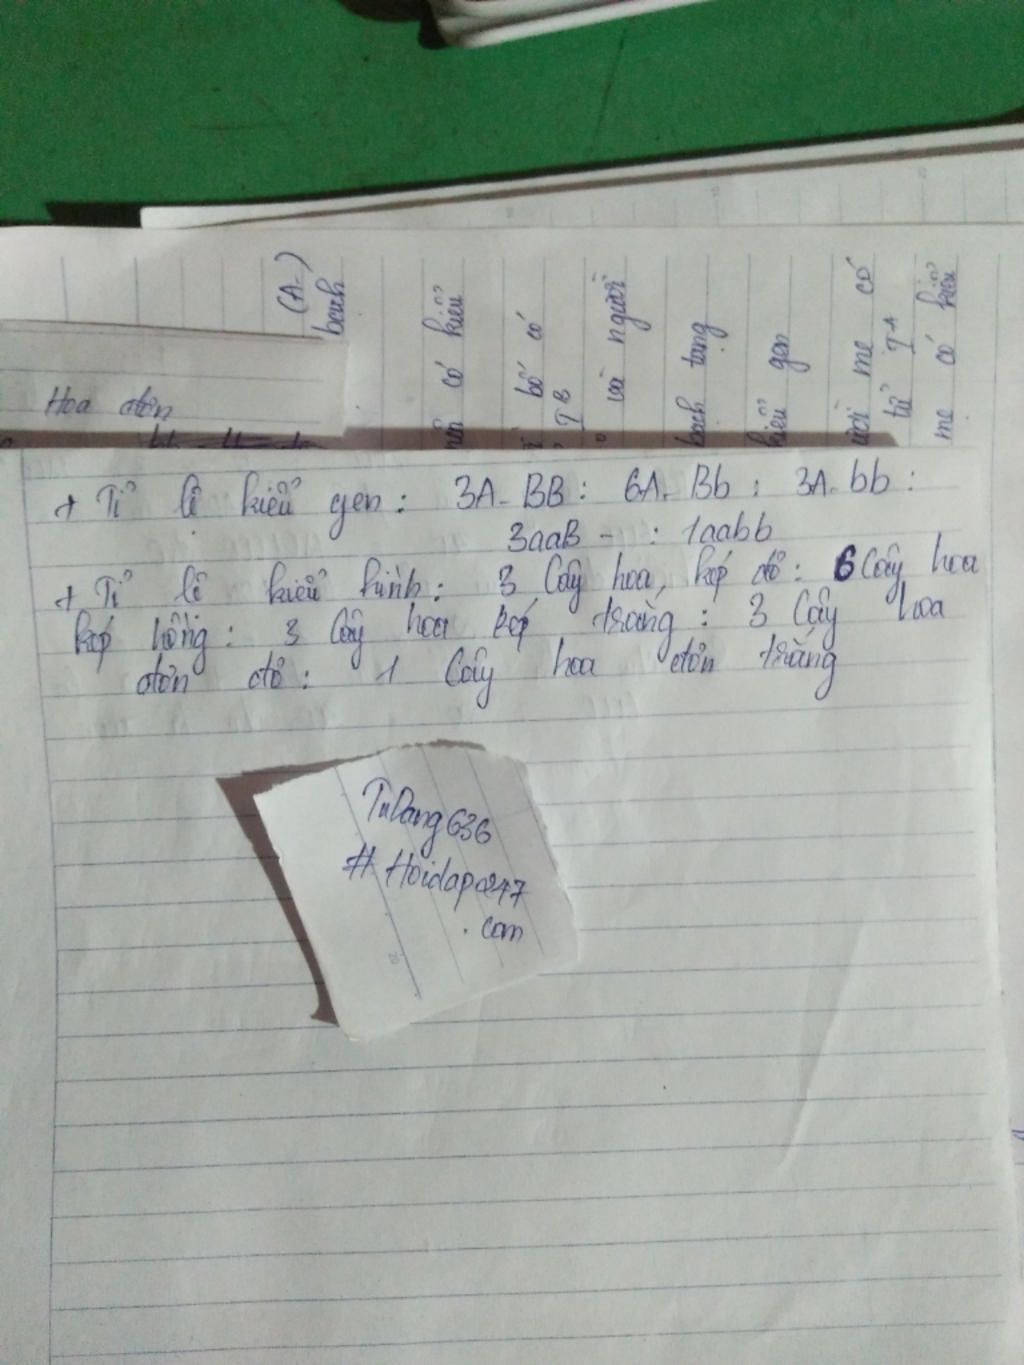 (A-)
bạch
có kiểu
bố có
TB
và người
bạch tạng
kiểu gen
mẹ có
tử TA
mẹ có kiểu
Hoa đơn
+ Tỉ lệ kiểu gen : 3A-BB : 6A-Bb : 3A-bb :
3aaB - : 1aabb
+ Tỉ lệ kiểu hình : 3 Cây hoa, kép đỏ : 6 Cây hoa
kép hồng : 3 Cây hoa kép trắng : 3 Cây hoa
đơn đỏ : 1 Cây hoa đơn trắng
TuDang636
# Hoidap247
. com